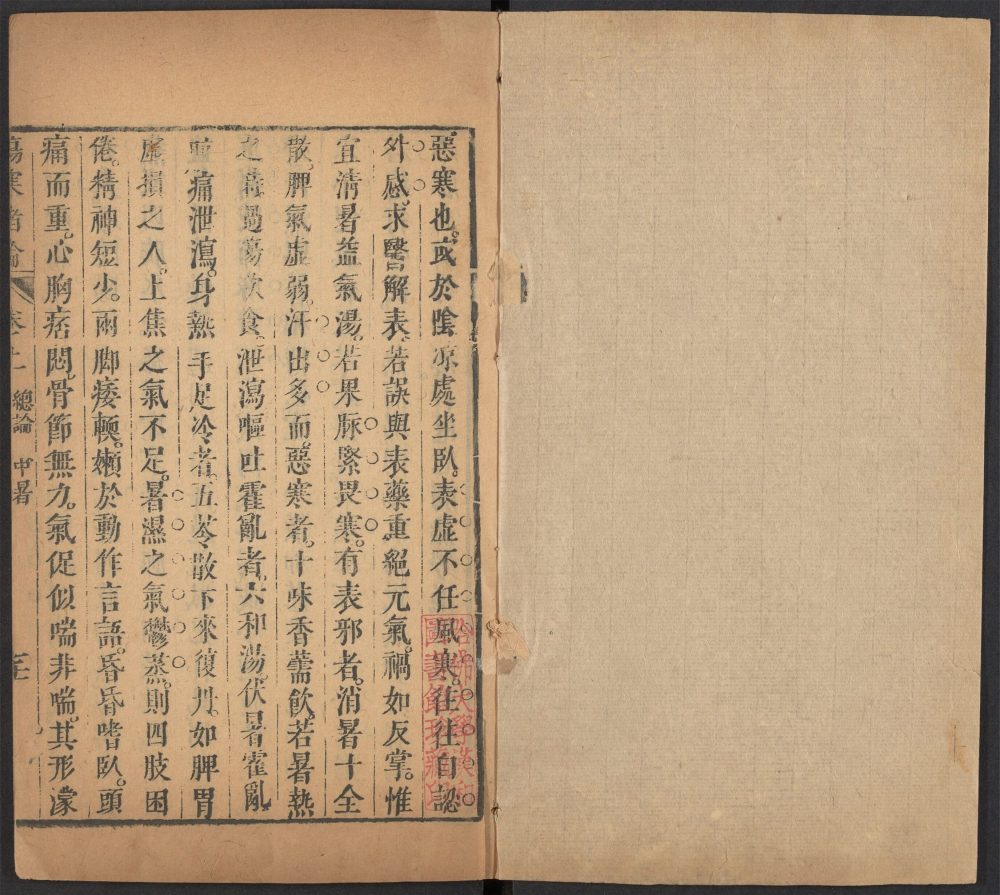 惡寒也。或於陰凉處坐臥。表虛不任風寒。往往自認
外感。求醫解表。若誤與表藥。重絕元氣。禍如反掌。惟
宜清暑益氣湯。若果脉緊畏寒。有表邪者。消暑十全
散。脾氣虛弱。汗出多而惡寒者。十味香薷飲。若暑熱
之過傷飲食。泄瀉嘔吐霍亂者。六和湯。伏暑霍亂
痛泄瀉。身熱手足冷者。五苓散下來復丹。如脾胃
虛損之人。上焦之氣不足。暑濕之氣鬱蒸。則四肢困
倦。精神短少。兩脚痿輭。嬾於動作言語。昏昏嗜臥。頭
痛而重。心胸痞悶。骨節無力。氣促似喘非喘。其形濛
傷寒緒論 卷上 總論 中暑
哈佛大學漢和
圖書館珍藏印